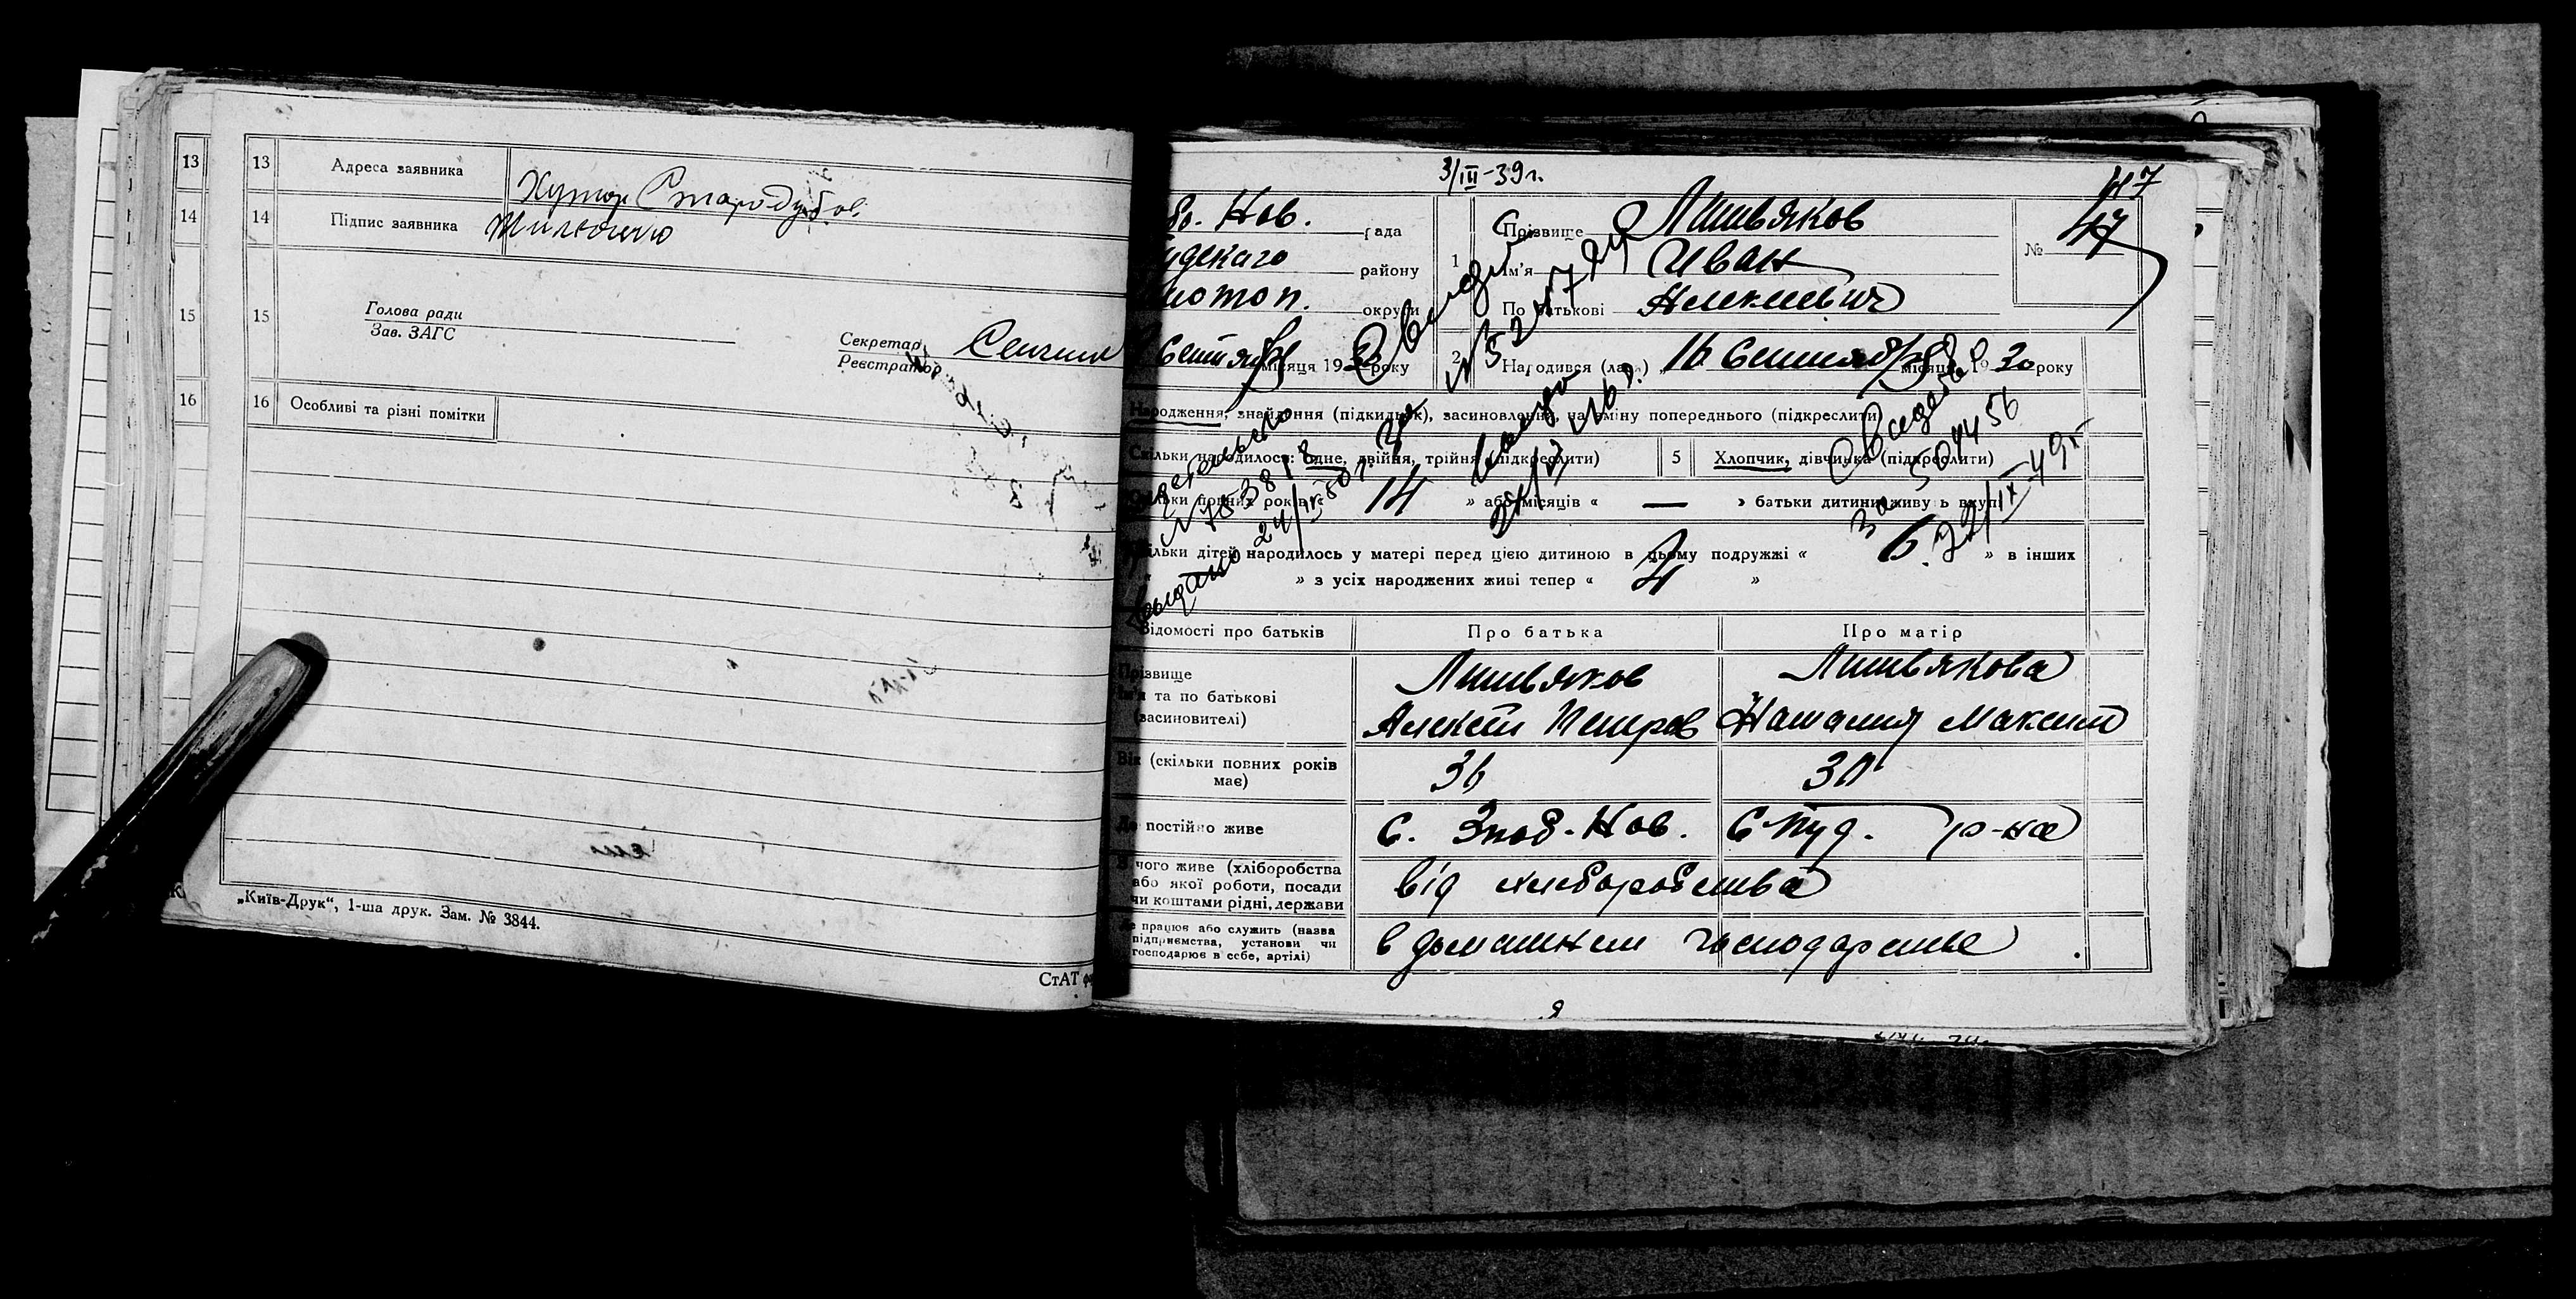 13
13 Адреса заявника Хутор Стародубов.
14
14 Підпис заявника
15
15 Голова ради
Зав. ЗАГС
Секретар
Реєстратор
16
16 Особливі та різні помітки
„Київ-Друк“, 1-ша друк. Зам. № 3844.
СтАТ
3/III-39 г.
47
Нов. рада
району
отоп. округи
Сентября місяця 1930 року
1 Прізвище Литвяков
Ім'я Иван
По батькові Алексеевич
№ 47
2 Народився (лась) 16 Сентября місяця 1930 року
Народження, знайдення (підкидьок), засиновлення, на зміну попереднього (підкреслити)
Скільки народилося: одне, двійня, трійня (підкреслити)
5 Хлопчик, дівчинка (підкреслити)
Скільки повних років « 14 » або місяців « — » батьки дитини живуть вкупі
Скільки дітей народилось у матері перед цією дитиною в цьому подружжі « 6 » в інших
» з усіх народжених живі тепер « 4 »
22/IX 49 г
Відомості про батьків
Про батька
Про матір
Прізвище
Ім'я та по батькові
(засиновителі)
Литвяков
Алексей Петров
Литвякова
Наталия Максим
Вік (скільки повних років
має)
36
30
Де постійно живе
С. Зноб-Нов. С-Буд. р-на
З чого живе (хліборобства
або якої роботи, посади
чи коштами рідні, держави
від хлеборобства
Де працює або служить (назва
підприємства, установи чи
господарює в себе, артілі)
в домашнем господарстве